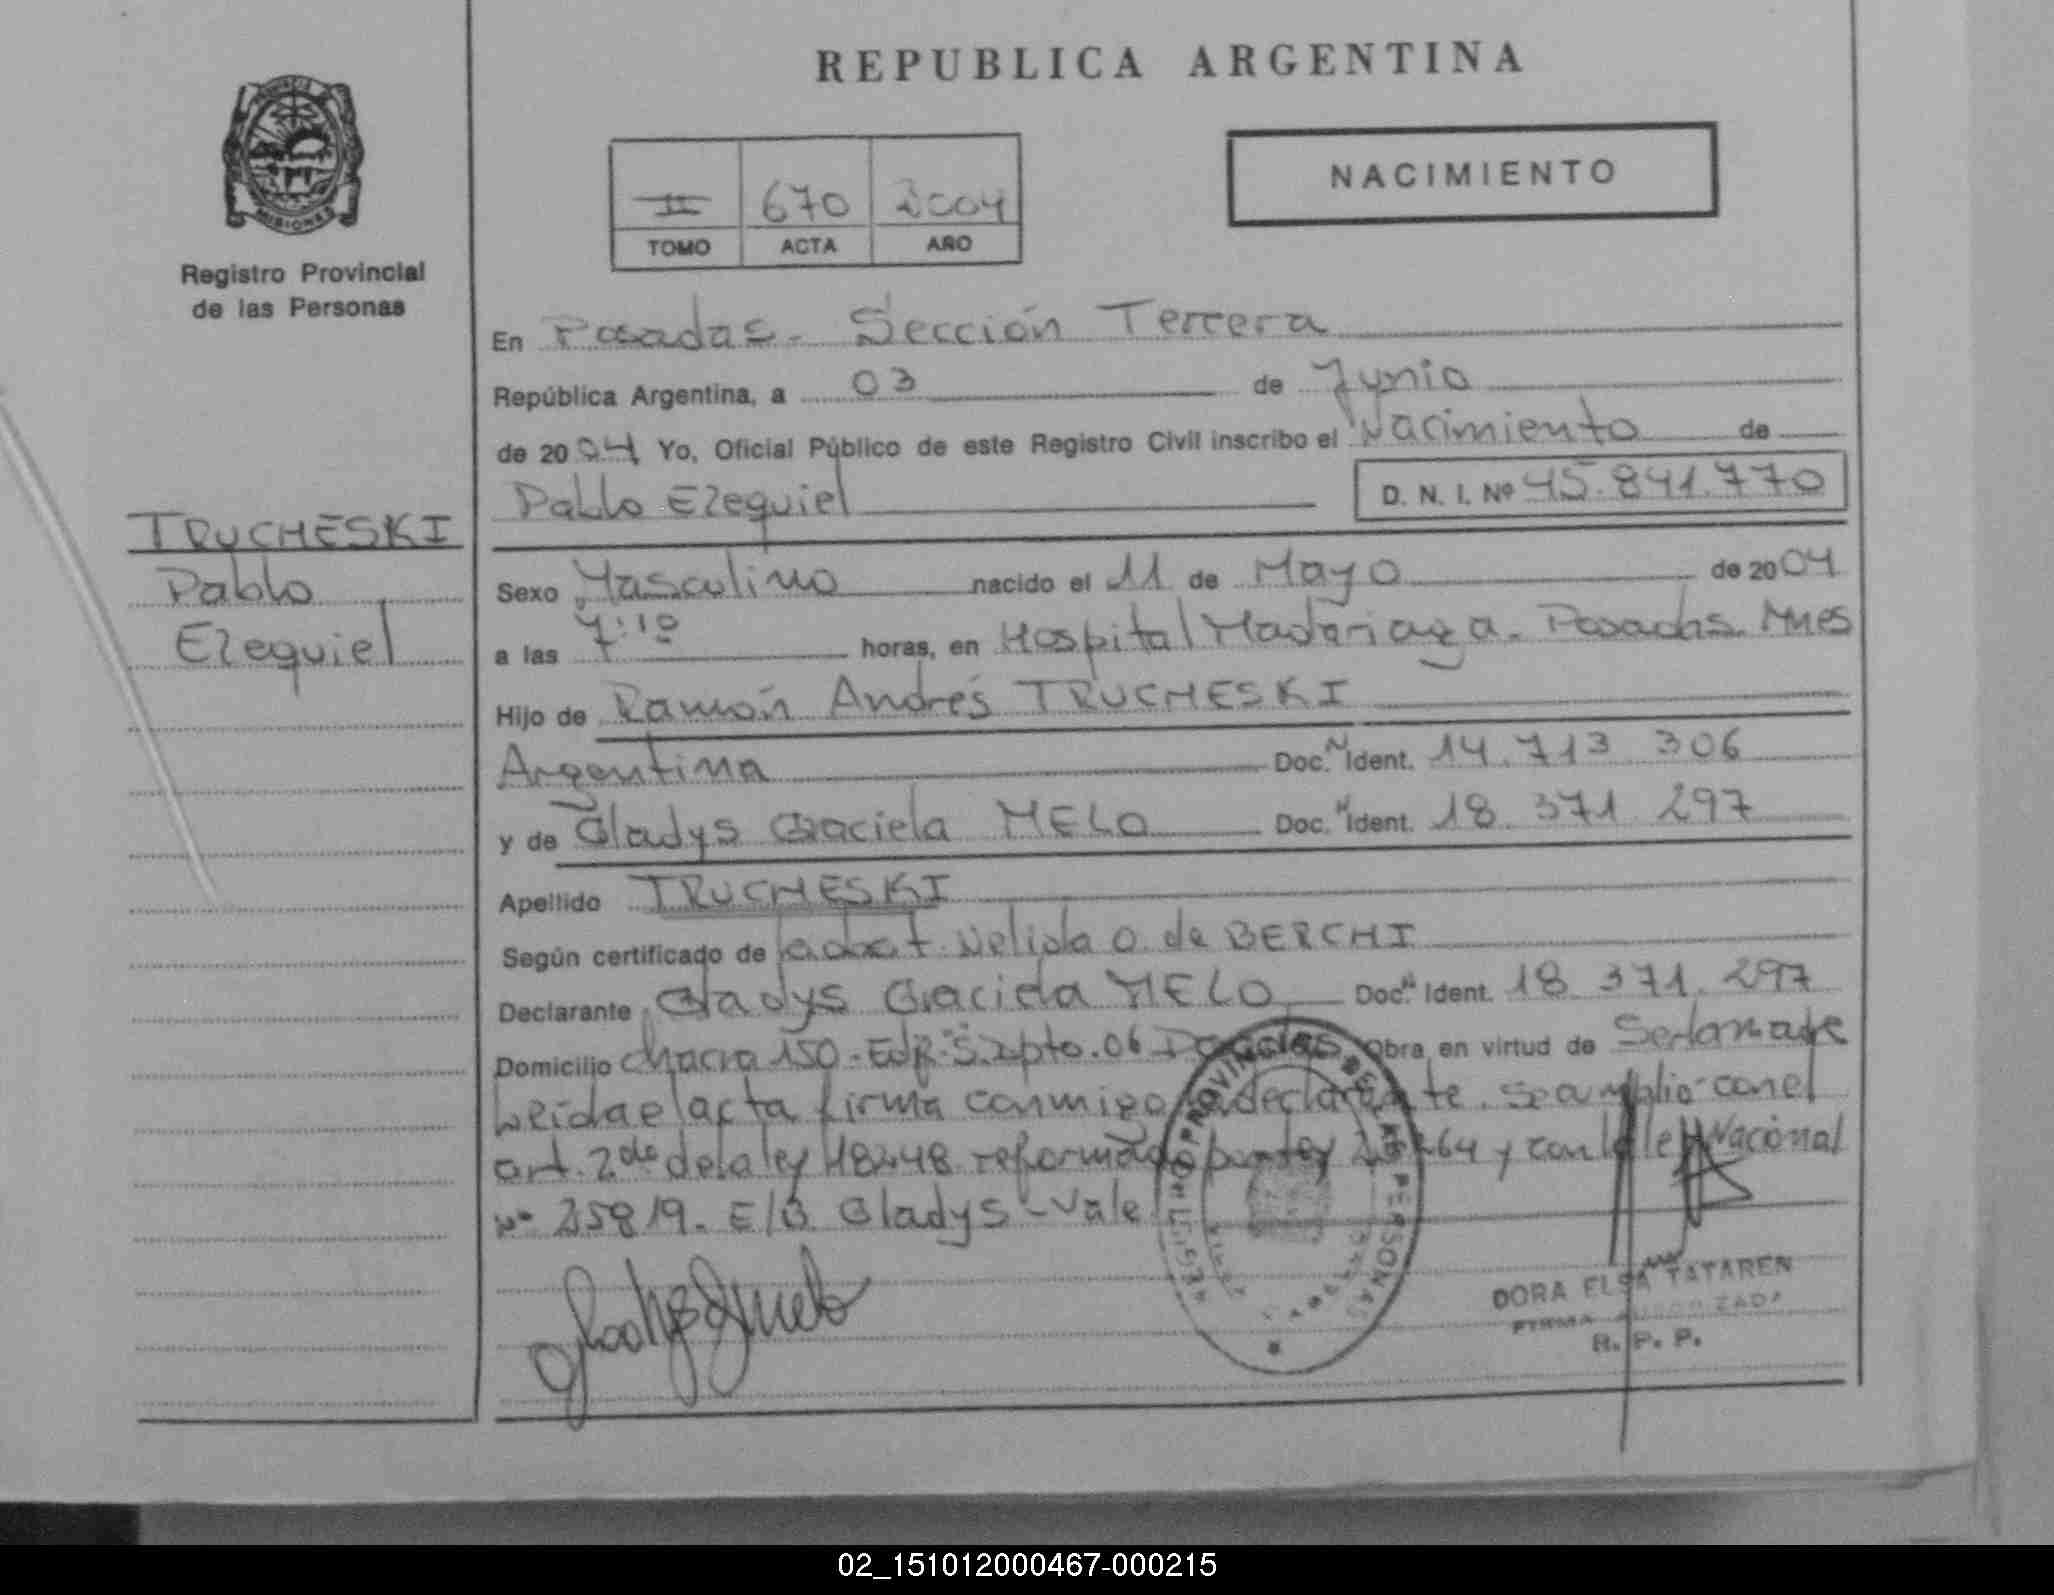 REPUBLICA ARGENTINA
NACIMIENTO
II 670 2004
TOMO ACTA AÑO
MISIONES
Registro Provincial
de las Personas
TRUCHESKI
Pablo
Ezequiel
En Posadas - Sección Tercera
República Argentina, a 03 de Junio
de 2004 Yo, Oficial Público de este Registro Civil inscribo el Nacimiento de
Pablo Ezequiel D. N. I. Nº 45.841.770
Sexo Masculino nacido el 11 de Mayo de 2004
a las 7:10 horas, en Hospital Madariaga - Posadas Mnes
Hijo de Ramón Andrés TRUCHESKI
Argentina Doc. N Ident. 14.713.306
y de Gladys Graciela MELO Doc. N Ident. 18.371.297
Apellido TRUCHESKI
Según certificado de la obst. Nelida O. de BERCHI
Declarante Gladys Graciela MELO Doc. N Ident. 18.371.297
Domicilio Chacra 150 - Edf. 5. Dpto. 06 Posadas Obra en virtud de Ser la madre
Leída el acta firma conmigo la declarante. Se amplio con el
art. 2do de la ley 18248 reformado por ley 23264 y con la ley Nacional
Nº 25819. E/B Gladys - Vale
REGISTRO PROVINCIAL DE LAS PERSONAS
DORA ELSA TATAREN
FIRMA AUTORIZADA
R. P. P.
02_151012000467-000215